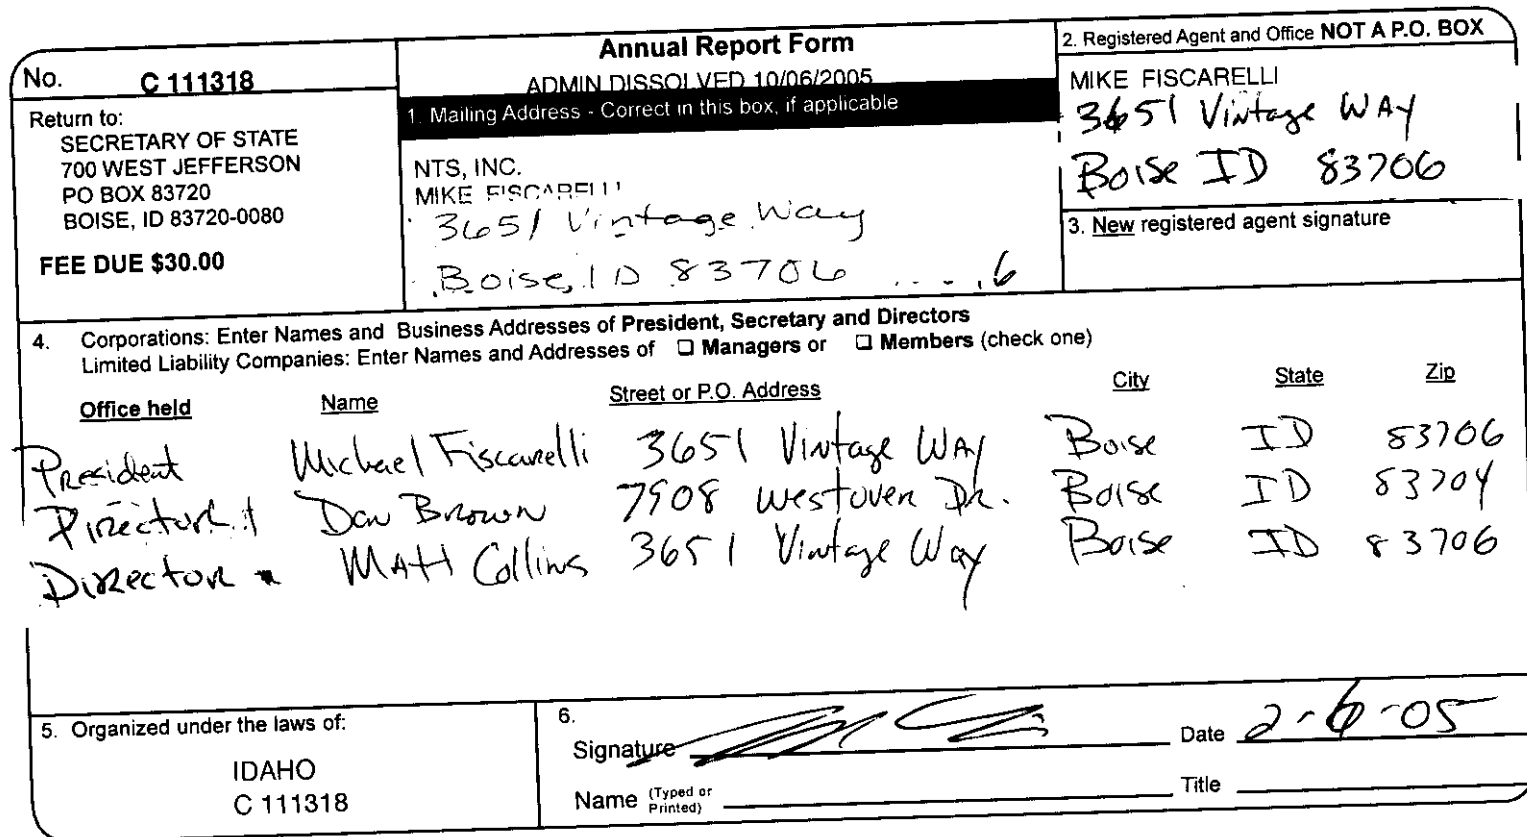 No. C 111318
Return to:
SECRETARY OF STATE
700 WEST JEFFERSON
PO BOX 83720
BOISE, ID 83720-0080
FEE DUE $30.00
Annual Report Form
ADMIN DISSOLVED 10/06/2005
1. Mailing Address - Correct in this box, if applicable
NTS, INC.
MIKE FISCARELLI
3651 Vintage Way
Boise, ID 83706
2. Registered Agent and Office NOT A P.O. BOX
MIKE FISCARELLI
3651 Vintage WAY
Boise ID 83706
3. New registered agent signature
4. Corporations: Enter Names and Business Addresses of President, Secretary and Directors
Limited Liability Companies: Enter Names and Addresses of ☐ Managers or ☐ Members (check one)
Office held Name Street or P.O. Address City State Zip
President Michael Fiscarelli 3651 Vintage WAY Boise ID 83706
Director Dan Brown 7908 Westover Dr. Boise ID 83704
Director Matt Collins 3651 Vintage Way Boise ID 83706
5. Organized under the laws of:
IDAHO
C 111318
6.
Signature Date 2-6-05
Name (Typed or Printed) Title